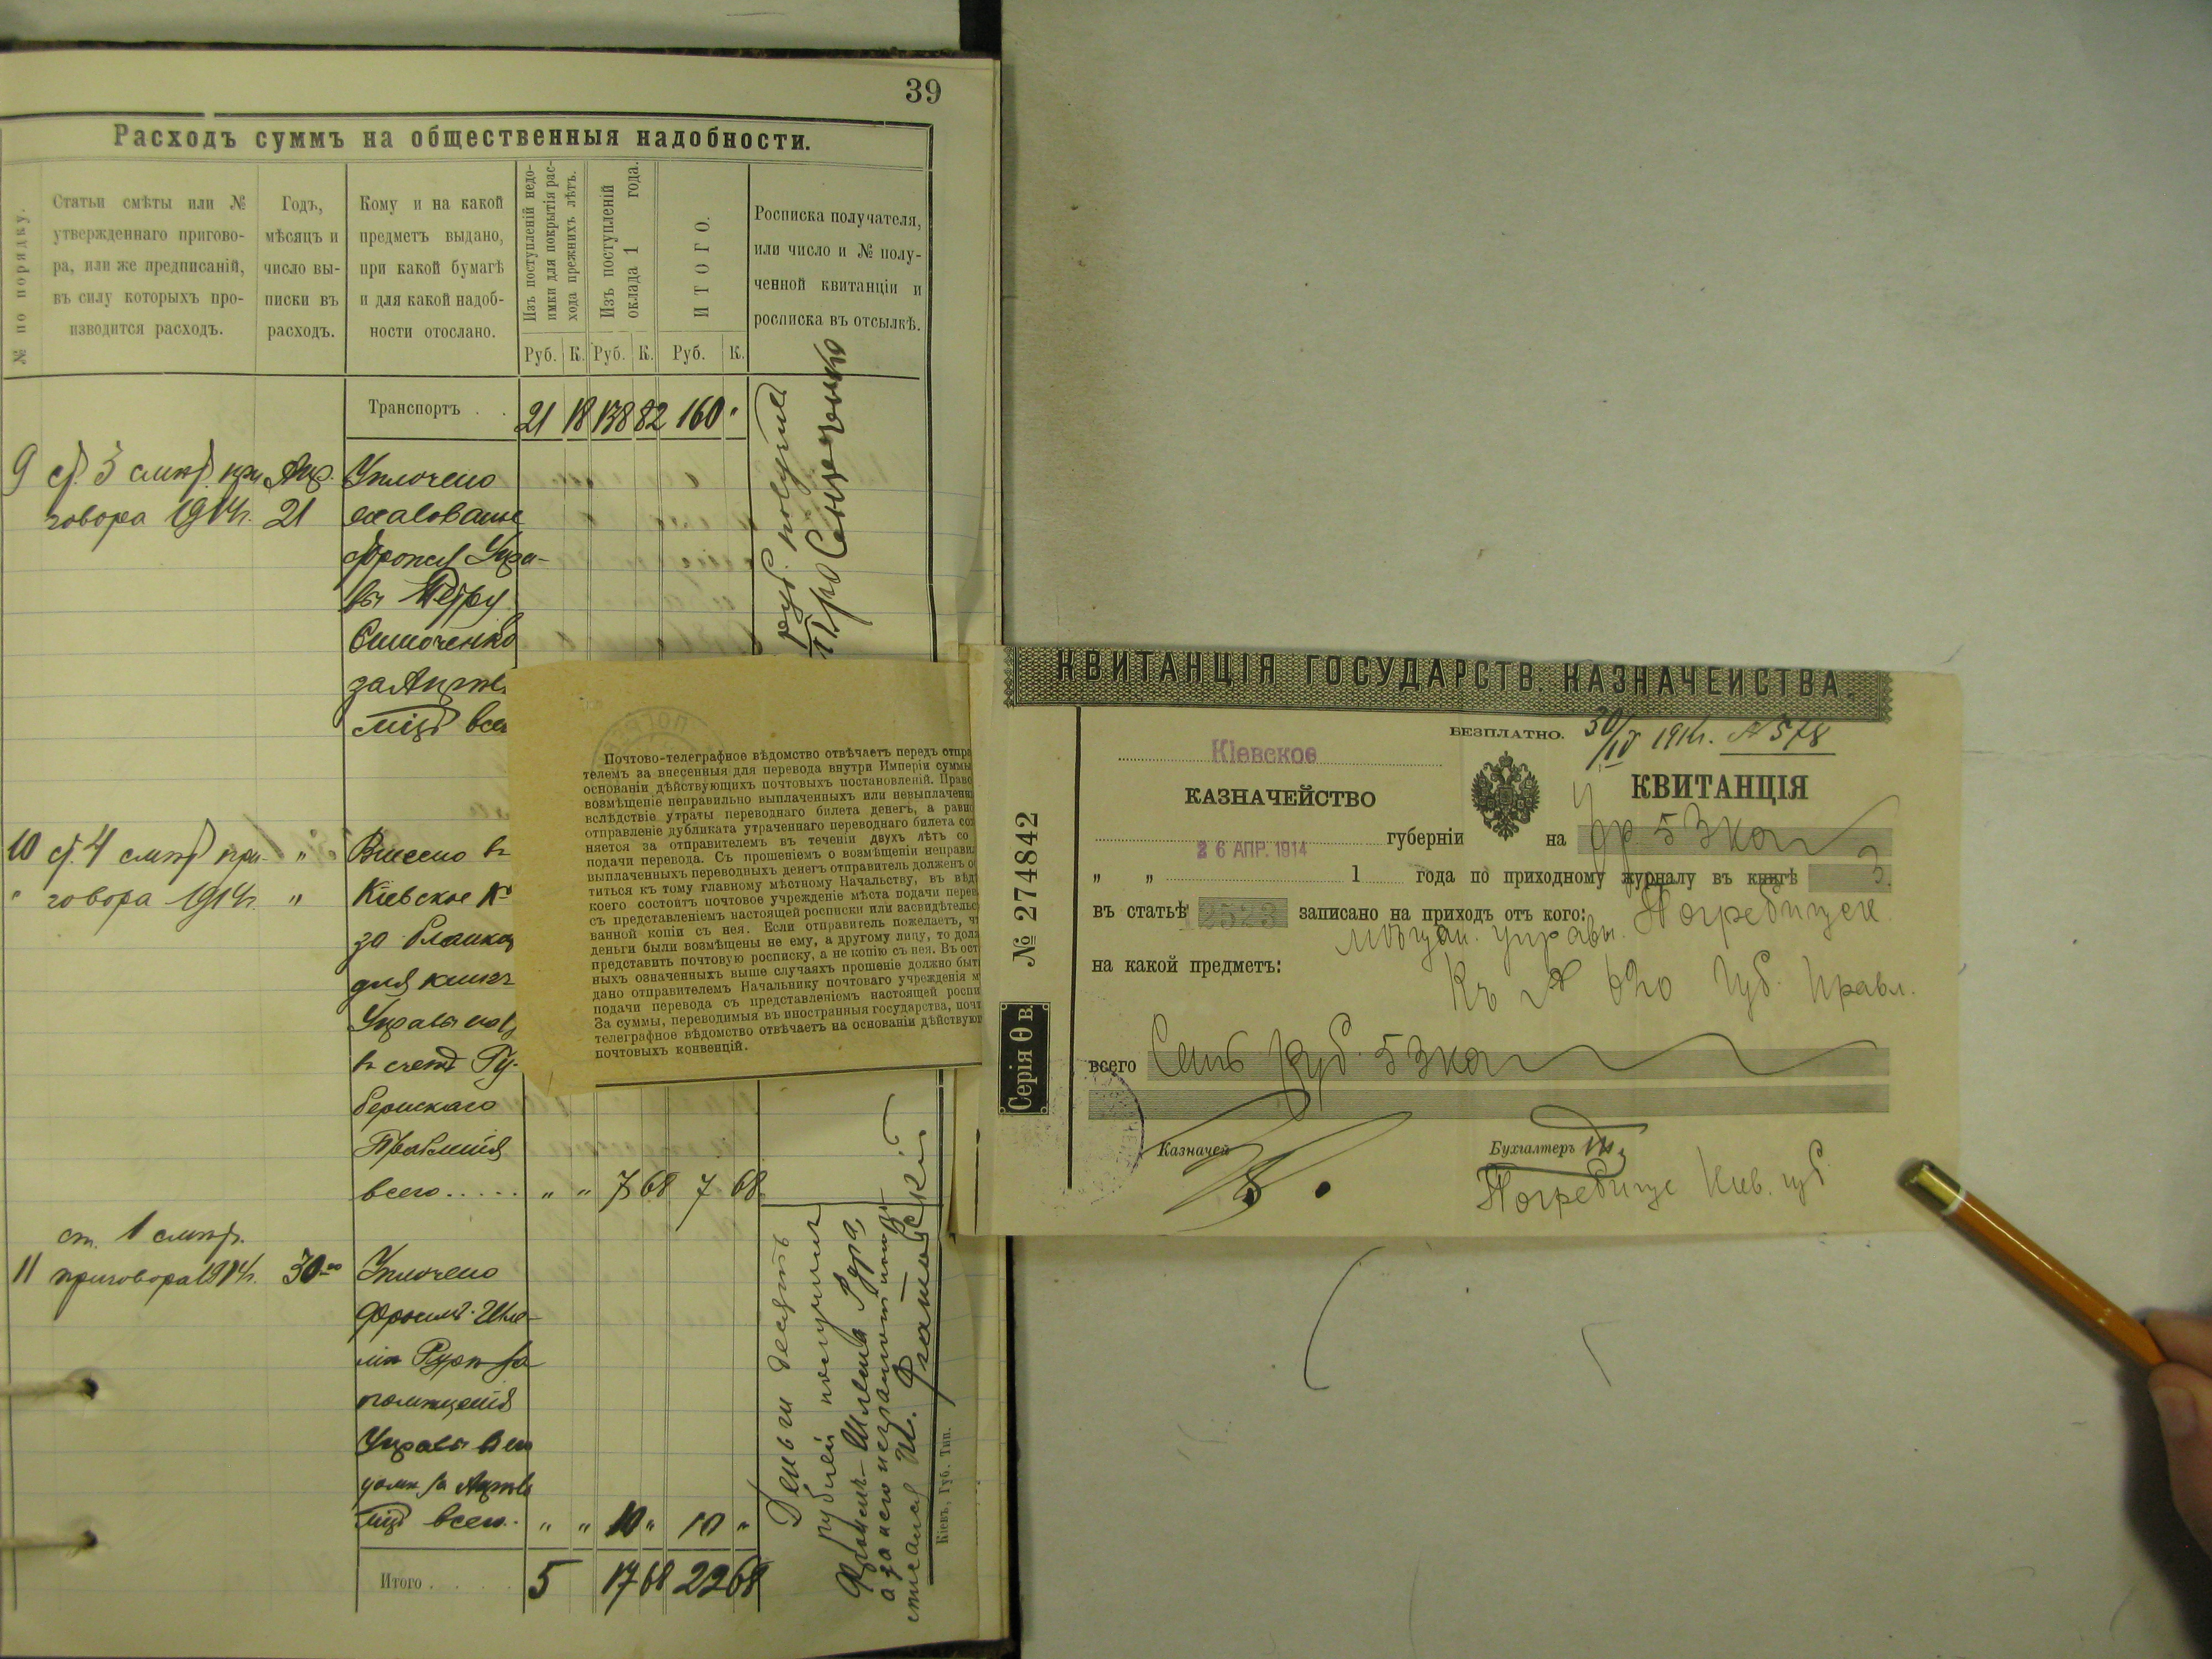 39
Расходъ суммъ на общественныя надобности.
№ по порядку.
Статьи смѣты или №
утвержденнаго пригово-
ра, или же предписаній,
въ силу которыхъ про-
изводится расходъ.
Годъ,
мѣсяцъ и
число вы-
писки въ
расходъ.
Кому и на какой
предметъ выдано,
при какой бумагѣ
и для какой надоб-
ности отослано.
Изъ поступленій недо-
имки для покрытія рас-
хода прежнихъ лѣтъ.
Изъ поступленій
оклада 1 года.
ИТОГО.
Росписка получателя,
или число и № полу-
ченной квитанціи и
росписка въ отсылкѣ.
Руб. К. Руб. К. Руб. К.
Транспортъ . . 21 18 138 82 160 "
9 ст. 3 смѣт. при Апр. Уплочено
говора 1914г. 21 жалованье
Упра-
вы Петру
за Апрель
всего
руб. получилъ
10 ст. 4 смѣт. при- " Внесено въ
" говора 1914г. " Кіевское К-
за бланки
для книгъ
Управы
въ счетъ Гу-
бернскаго
Правленія
всего..... " " 7 68 7 68
ст. 1 смѣт.
11 приговора 1914г. 30 Уплочено
Шле-
мѣ за
помѣщенія
Управы
за Апрель
всего. " " 10 " 10 "
Итого . . . . 5 17 68 22 68
Деньги десять
рублей получилъ
Шлема
а за него неграмотнаго
Кіевъ, Губ. Тип.
Почтово-телеграфное вѣдомство отвѣчаетъ передъ отпра
телемъ за внесенныя для перевода внутри Имперіи суммы
основаніи дѣйствующихъ почтовыхъ постановленій. Право
возмѣщеніе неправильно выплаченныхъ или невыплаченн
вслѣдствіе утраты переводнаго билета денегъ, а равно
отправленіе дубликата утраченнаго переводнаго билета со
няется за отправителемъ въ теченіи двухъ лѣтъ со
подачи перевода. Съ прошеніемъ о возмѣщеніи неправи
выплаченныхъ переводныхъ денегъ отправитель долженъ о
титься къ тому главному мѣстному Начальству, въ вѣд
коего состоитъ почтовое учрежденіе мѣста подачи перев
съ представленіемъ настоящей росписки или засвидѣтельс
ванной копіи съ нея. Если отправитель пожелаетъ, ч
деньги были возмѣщены не ему, а другому лицу, то дол
представить почтовую росписку, а не копію съ нея. Въ ост
ныхъ означенныхъ выше случаяхъ прошеніе должно быт
дано отправителемъ Начальнику почтоваго учрежденія м
подачи перевода съ представленіемъ настоящей роспи
За суммы, переводимыя въ иностранныя государства, почт
телеграфное вѣдомство отвѣчаетъ на основаніи дѣйствую
почтовыхъ конвенцій.
КВИТАНЦІЯ ГОСУДАРСТВ. КАЗНАЧЕЙСТВА.
БЕЗПЛАТНО. 30/IV 1914г. № 578
Кіевское
КАЗНАЧЕЙСТВО
КВИТАНЦІЯ
губерніи на 7 р. 53 коп
26 АПР. 1914
" " 1 года по приходному журналу въ книгѣ 3.
въ статьѣ 2523 записано на приходъ отъ кого: Погребищен.
мѣщан. управы.
на какой предметъ:
Къ № 620 Губ. Правл.
всего Семь руб. 53 коп
Казначей
Бухгалтеръ
Погребище Кіев. губ
№ 274842
Серія Ѳ в.